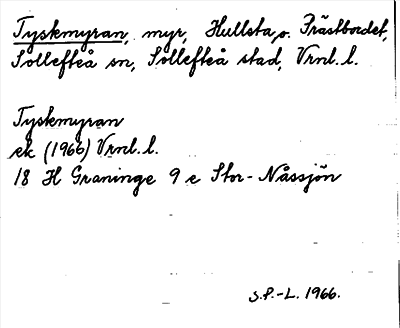 Tyskmyran, myr, Hullsta o. Prästbordet,
Sollefteå sn, Sollefteå stad, Vrnl. l.
Tyskmyran
ek (1966) Vrnl. l.
18 H Graninge 9 e Stor-Nåssjön
S.P.-L. 1966.